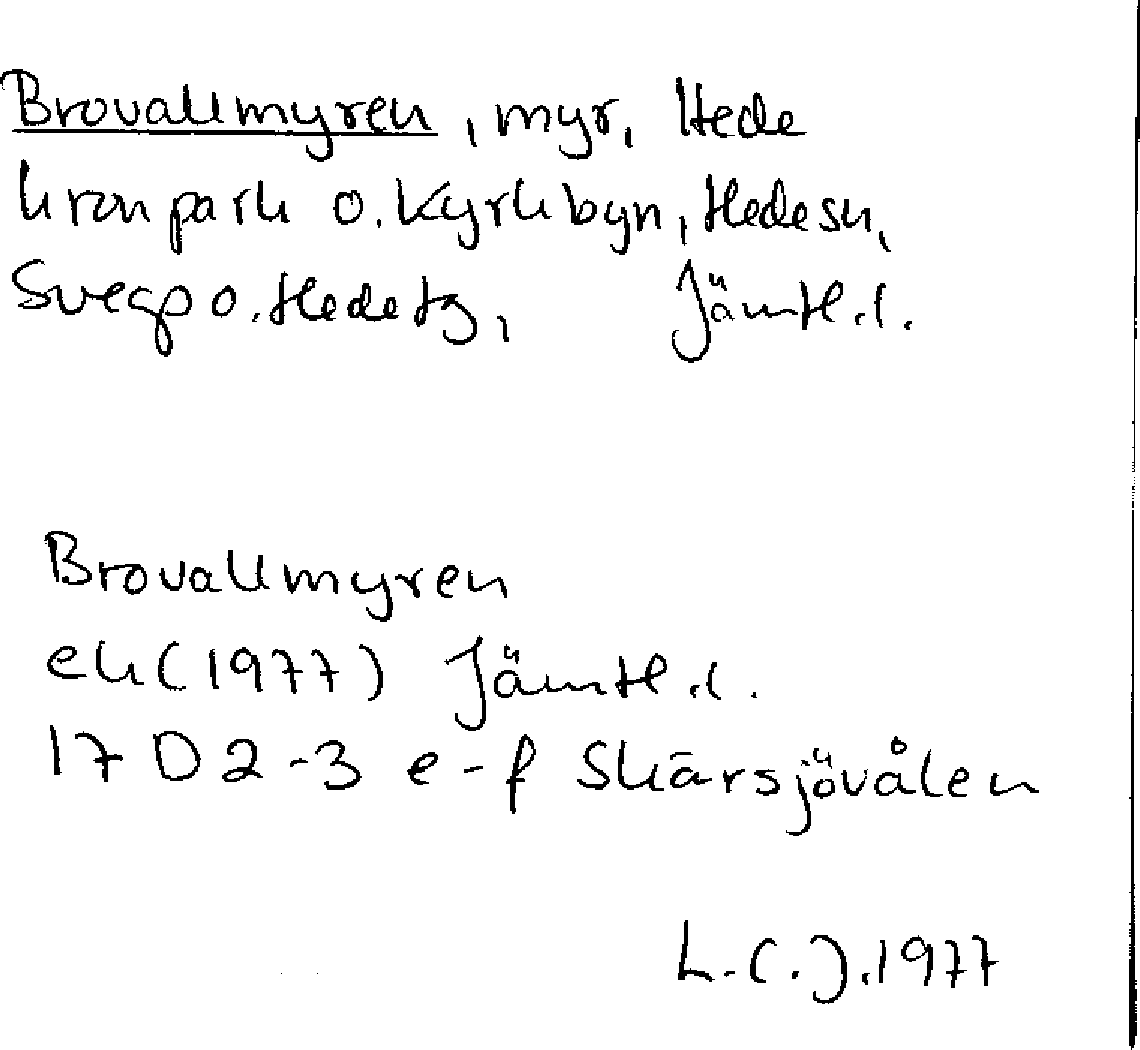 Brovallmyren, myr, Hede
kronpark o. Kyrkbyn, Hede sn,
Svegs po. Hede tg, Jämtl. l.
Brovallmyren
ek (1977) Jämtl. l.
17 D 2-3 e-f Skärsjövålen
L. C. J. 1977